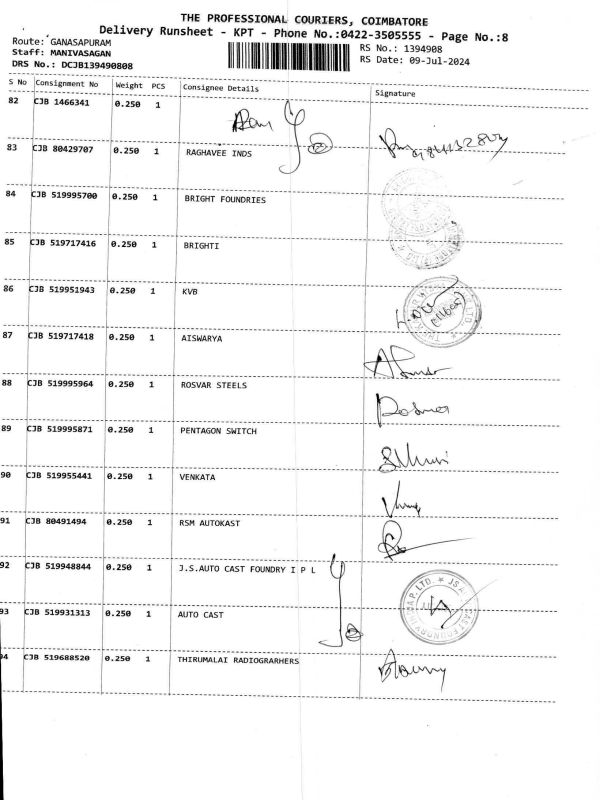 THE PROFESSIONAL COURIERS, COIMBATORE
Delivery Runsheet - KPT - Phone No.:0422-3505555 - Page No.:8
Route: GANASAPURAM
Staff: MANIVASAGAN
DRS No.: DCJB139490808
RS No.: 1394908
RS Date: 09-Jul-2024
S No Consignment No Weight PCS Consignee Details Signature
82 CJB 1466341 0.250 1
83 CJB 80429707 0.250 1 RAGHAVEE INDS
84 CJB 519995700 0.250 1 BRIGHT FOUNDRIES
85 CJB 519717416 0.250 1 BRIGHTI
86 CJB 519951943 0.250 1 KVB
87 CJB 519717418 0.250 1 AISWARYA
88 CJB 519995964 0.250 1 ROSVAR STEELS
89 CJB 519995871 0.250 1 PENTAGON SWITCH
90 CJB 519955441 0.250 1 VENKATA
91 CJB 80491494 0.250 1 RSM AUTOKAST
92 CJB 519948844 0.250 1 J.S.AUTO CAST FOUNDRY I P L
93 CJB 519931313 0.250 1 AUTO CAST
94 CJB 519688520 0.250 1 THIRUMALAI RADIOGRARHERS